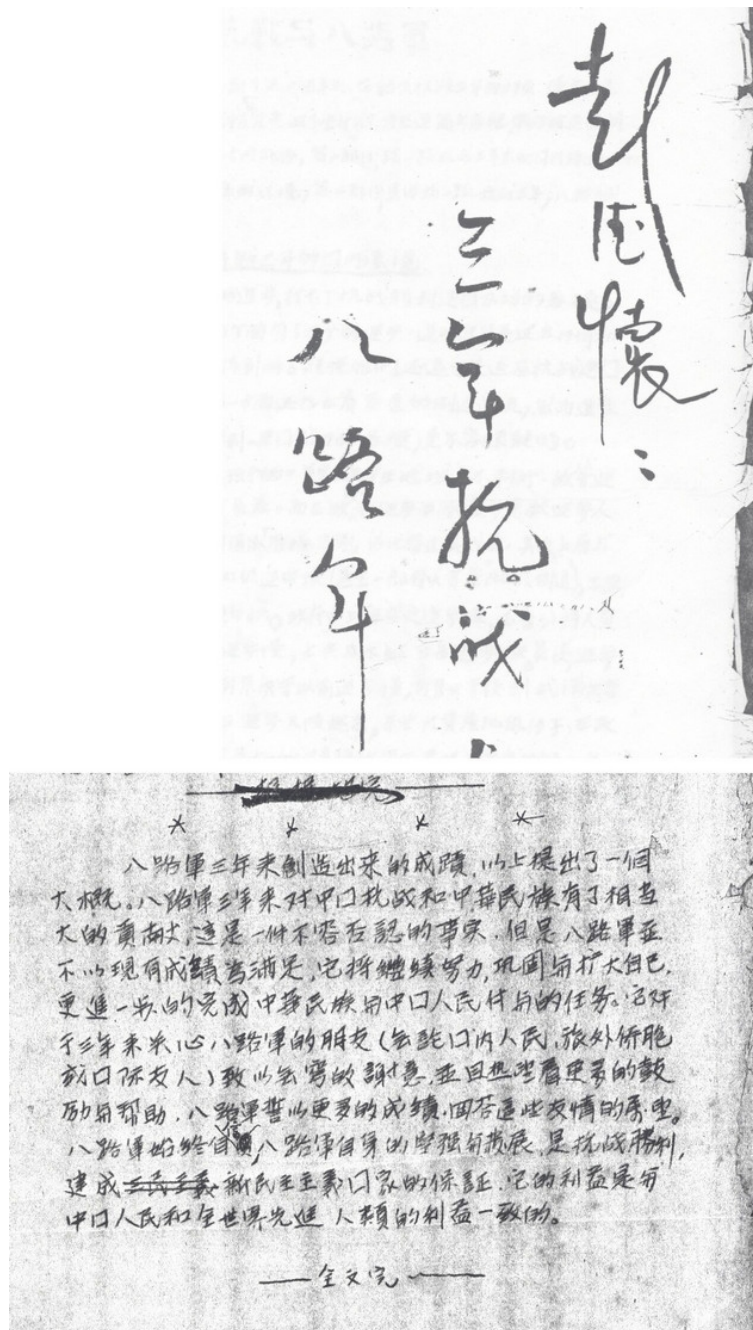 彭德怀：
三年抗战与
八路军
八路軍三年来創造出来的成蹟，以上提出了一個
大概。八路軍三年来对中口抗战和中華民族有了相当
大的貢献，這是一件不容否認的事実．但是八路軍並
不以現有成績为滿足，它将継续努力，巩固与扩大自己，
更進一步的完成中華民族与中口人民付与的任务。它对
于三年来关心八路軍的朋友（無論口内人民，旅外侨胞
或口际友人）致以無穷的謝意，並且热望着更多的鼓
励与帮助．八路軍誓以更多的成績，回答這些友情的希望。
八路軍始終自信，八路軍自身的坚强与发展，是抗战勝利，
建成三民主義新民主主義口家的保証，它的利益是与
中口人民和全世界先進人類的利益一致的。
——全文完——